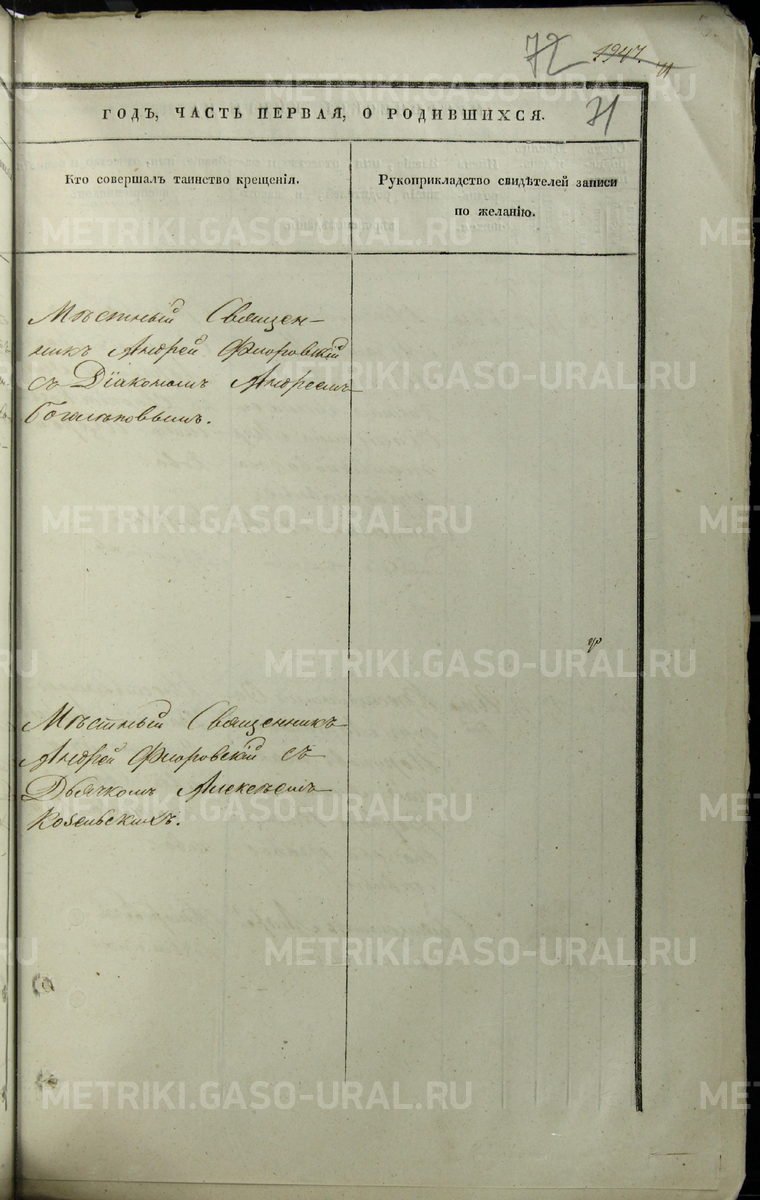 72
1947.
71
71
ГОДЪ, ЧАСТЬ ПЕРВАЯ, О РОДИВШИХСЯ.
Кто совершалъ таинство крещенія.
Рукоприкладство свидѣтелей записи
по желанію.
Мѣстный Священ-
никъ Андрей Флоровскій
съ Діакономъ Андреемъ
Богомѣповымъ.
Мѣстный Священникъ
Андрей Флоровскій съ
Дьячкомъ Алексѣемъ
Козельскимъ.
METRIKI.GASO-URAL.RU